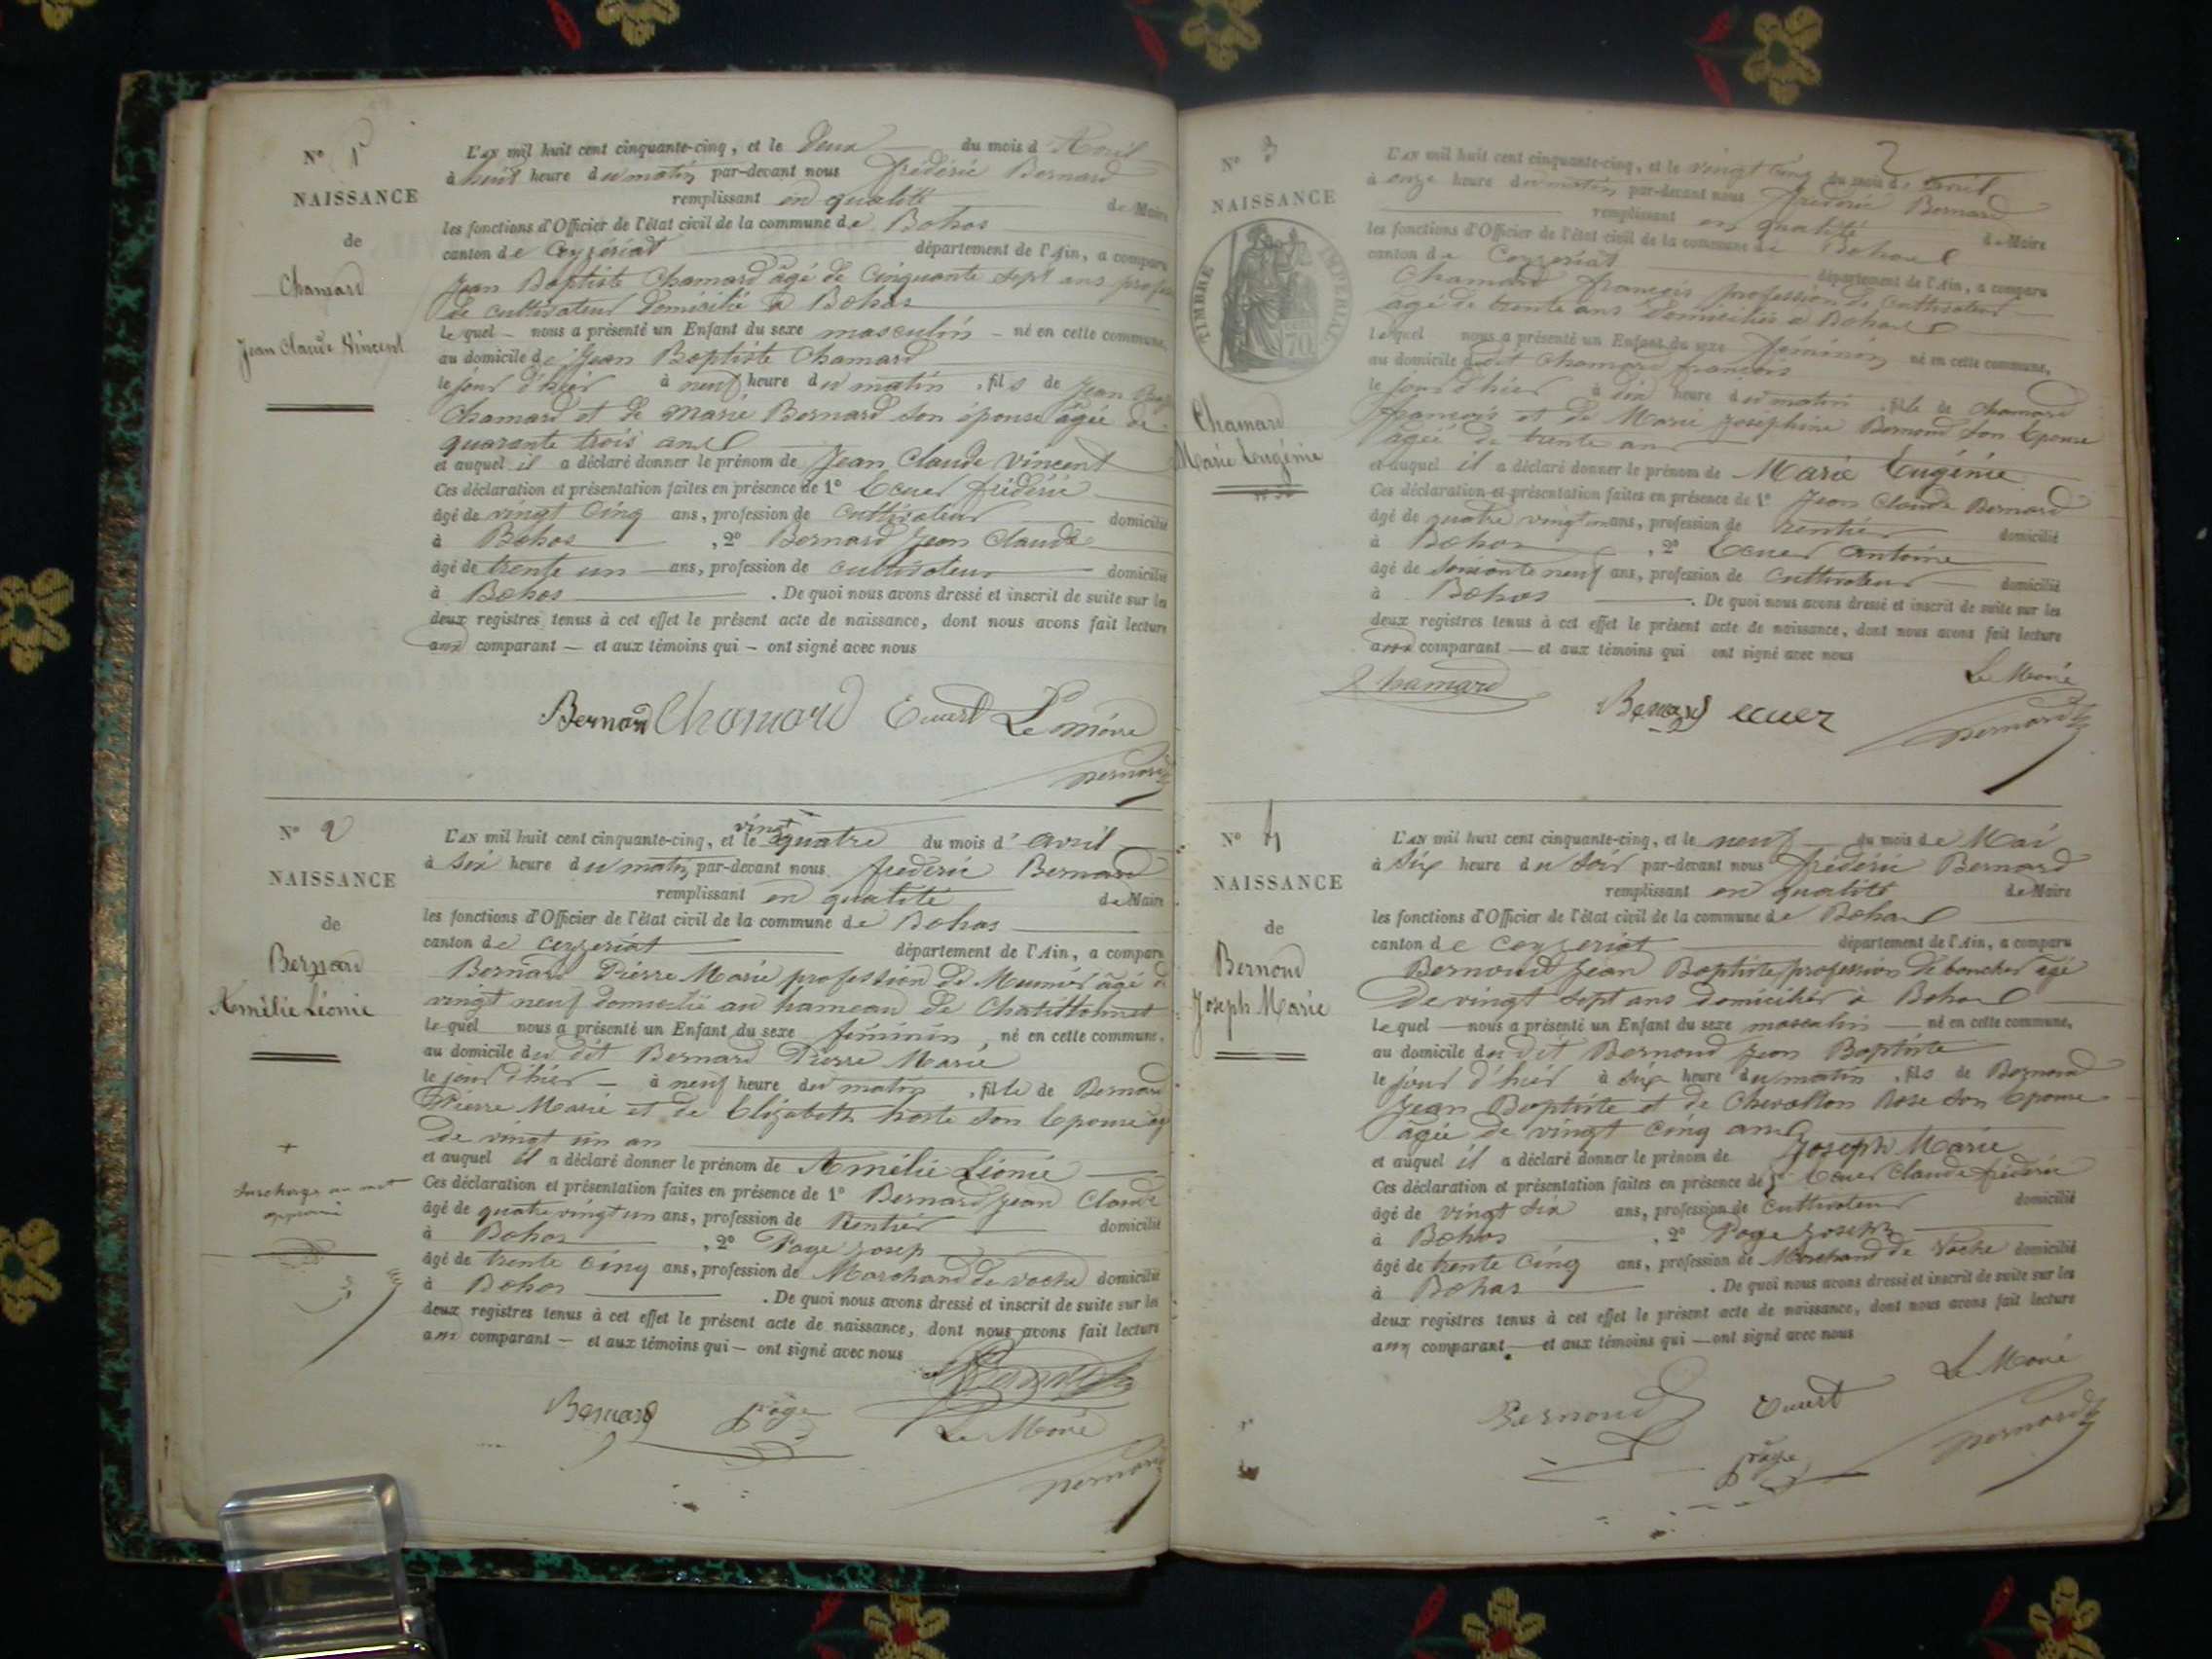 N° 1
NAISSANCE
de
Chamard
Jean Claude Vincent
L'AN mil huit cent cinquante-cinq, et le Deux du mois d'Avril
à huit heure du matin par-devant nous frédéric Bernard
remplissant en qualité de Maire
les fonctions d'Officier de l'état civil de la commune de Bohas
canton de Ceyzeriat département de l'Ain, a comparu
Jean Baptiste Chamard âgé de Cinquante sept ans
de cultivateur domicilié à Bohas
lequel nous a présenté un Enfant du sexe masculin né en cette commune,
au domicile de Jean Baptiste Chamard
le jour d'hier à neuf heure du matin, fils de Jean
Chamard et de Marie Bernard son épouse âgée de
quarante trois ans
et auquel il a déclaré donner le prénom de Jean Claude Vincent
Ces déclaration et présentation faites en présence de 1° Ecuer frédéric
âgé de vingt Cinq ans, profession de Cultivateur domicilié
à Bohas, 2° Bernard Jean Claude
âgé de trente un ans, profession de cultivateur domicilié
à Bohas. De quoi nous avons dressé et inscrit de suite sur les
deux registres tenus à cet effet le présent acte de naissance, dont nous avons fait lecture
aux comparant et aux témoins qui ont signé avec nous
Bernard Chamard Le Maire
Bernard
N° 2
NAISSANCE
de
Bernard
Amélie Léonie
Surcharge au mot
L'AN mil huit cent cinquante-cinq, et le vingt quatre du mois d'avril
à six heure du matin par-devant nous frederic Bernard
remplissant en qualité de Maire
les fonctions d'Officier de l'état civil de la commune de Bohas
canton de Ceyzeriat département de l'Ain, a comparu
Bernard Pierre Marie profession de Meunier âgé de
vingt neuf domicilié au hameau de
lequel nous a présenté un Enfant du sexe féminin, né en cette commune,
au domicile du dit Bernard Pierre Marie
le jour d'hier à neuf heure du matin, fille de Bernard
Pierre Marie et de Elizabeth son Epouse
de vingt un an
et auquel il a déclaré donner le prénom de Amélie Léonie
Ces déclaration et présentation faites en présence de 1° Bernard Jean Claude
âgé de quatre vingt un ans, profession de Rentier domicilié
à Bohas, 2° Page Josep
âgé de trente Cinq ans, profession de Marchand de vache domicilié
à Bohas. De quoi nous avons dressé et inscrit de suite sur les
deux registres tenus à cet effet le présent acte de naissance, dont nous avons fait lecture
aux comparant et aux témoins qui ont signé avec nous
Bernard page Le Maire
Bernard
2
N° 3
NAISSANCE
TIMBRE IMPERIAL
70
Chamard
Marie Eugénie
L'AN mil huit cent cinquante-cinq, et le vingt Cinq du mois de avril
à onze heure du matin par-devant nous frédéric Bernard
remplissant en qualité de Maire
les fonctions d'Officier de l'état civil de la commune de Bohas
canton de Ceyzeriat département de l'Ain, a comparu
Chamard françois profession de Cultivateur
âgé de trente ans domicilié à Bohas
lequel nous a présenté un Enfant du sexe féminin né en cette commune,
au domicile dudit Chamard françois
le jour d'hier à dix heure du matin, fille de Chamard
françois et de Marie Josephine son Epouse
âgée de trente an
et auquel il a déclaré donner le prénom de Marie Eugénie
Ces déclaration et présentation faites en présence de 1° Jean Claude Bernard
âgé de quatre vingt un ans, profession de rentier domicilié
à Bohas, 2° Ecuer Antoine
âgé de soixante neuf ans, profession de Cultivateur domicilié
à Bohas. De quoi nous avons dressé et inscrit de suite sur les
deux registres tenus à cet effet le présent acte de naissance, dont nous avons fait lecture
aux comparant et aux témoins qui ont signé avec nous
Chamard Bernard ecuer Le Maire
Bernard
N° 4
NAISSANCE
de
Bernoud
Joseph Marie
L'AN mil huit cent cinquante-cinq, et le neuf du mois de Mai
à six heure du soir par-devant nous frédéric Bernard
remplissant en qualité de Maire
les fonctions d'Officier de l'état civil de la commune de Bohas
canton de Ceyzeriat département de l'Ain, a comparu
Bernoud Jean Baptiste profession de boucher âgé
de vingt sept ans domicilier à Bohas
lequel nous a présenté un Enfant du sexe masculin né en cette commune,
au domicile du dit Bernoud Jean Baptiste
le jour d'hier à six heure du matin, fils de Bernoud
Jean Baptiste et de Rose son Epouse
âgée de vingt Cinq ans
et auquel il a déclaré donner le prénom de Joseph Marie
Ces déclaration et présentation faites en présence de 1° Ecuer Claude frédéric
âgé de vingt six ans, profession de Cultivateur domicilié
à Bohas, 2° Page Joseph
âgé de trente Cinq ans, profession de Marchand de Vache domicilié
à Bohas. De quoi nous avons dressé et inscrit de suite sur les
deux registres tenus à cet effet le présent acte de naissance, dont nous avons fait lecture
aux comparant et aux témoins qui ont signé avec nous
Bernoud Le Maire
page Bernard